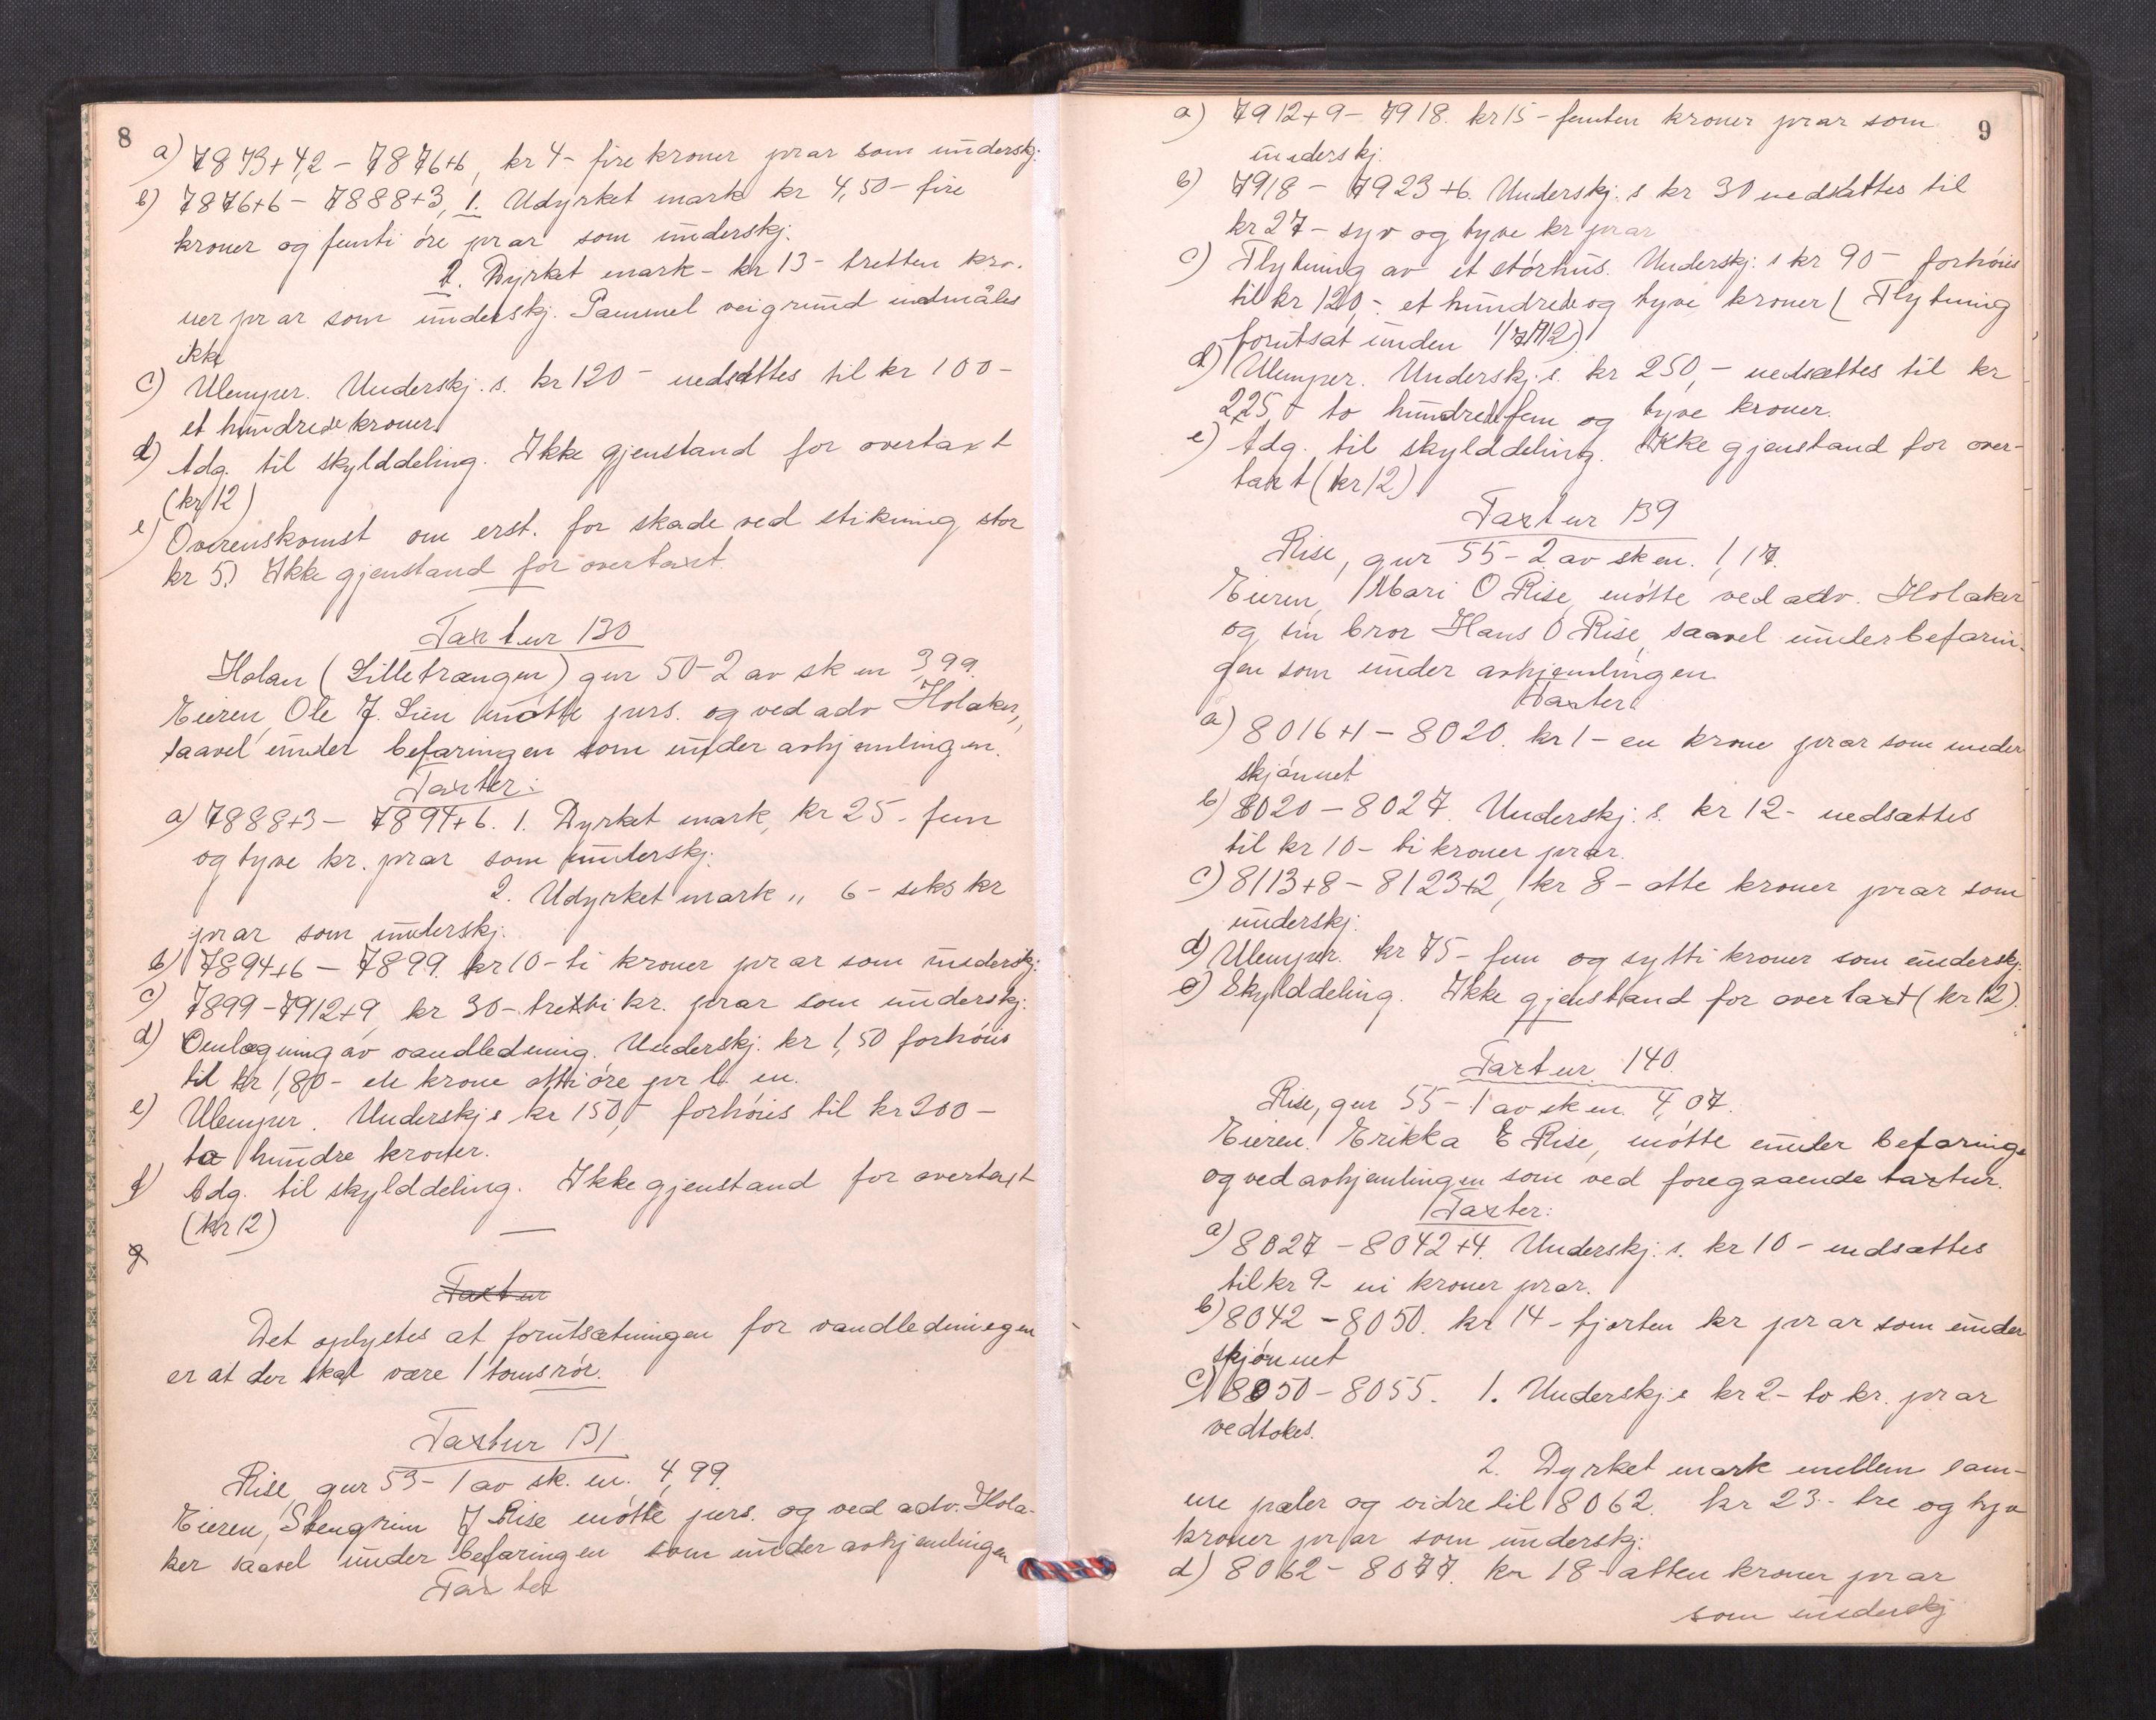 8
a) 7873+4,2 - 7876+6, kr 4- fire kroner pr ar som underskj.
b) 7876+6 - 7888+3, 1. Udyrket mark kr 4,50 - fire
kroner og femti øre pr ar som underskj.
2. Dyrket mark - kr 13 - tretten kro-
ner pr ar som underskj. Gammel veigrund indmåles
ikke
c) Ulemper. Underskj. s. kr 120 - nedsættes til kr 100 -
et hundrede kroner
d) Adg. til skylddeling. Ikke gjenstand for overtaxt
(kr 12)
e) Overenskomst om erst. for skade ved stikning, stor
kr 5.) Ikke gjenstand for overtaxt.
Taxtnr 130
Holan (Lilletrangen) gnr 50-2 av sk en 3,99.
Eieren, Ole J. Lien møtte pers. og ved adv Holaker,
saavel under befaringen som under avhjemlingen.
Taxter:
a) 7888+3 - 7894+6. 1. Dyrket mark, kr 25 - fem
og tyve kr. pr ar som underskj.
2. Udyrket mark " 6 - seks kr
pr ar som underskj.
b) 7894+6 - 7899. kr 10 - ti kroner pr ar som underskj.
c) 7899 - 7912+9, kr 30 - tretti kr. pr ar som underskj.
d) Omlægning av vandledning. Underskj. kr 1,50 forhøies
til kr 1,80 - en krone otti øre pr l. m.
e) Ulemper. Underskj s kr 150,- forhøies til kr 200 -
to hundre kroner.
f) Adg. til skylddeling. Ikke gjenstand for overtaxt
(kr 12)
g
Taxtnr
Det oplystes at forutsætningen for vandledningen
er at der skal være 1 tomsrör.
Taxtnr 131
Rise, gnr 53 - 1 av sk. en. 4,99.
Eieren, Stengrim J Rise møtte pers. og ved adv. Hola-
ker saavel under befaringen som under avhjemlingen
Taxter
9
a) 7912+9 - 7918. kr 15 - femten kroner pr ar som
underskj.
b) 7918 - 7923+6. Underskj. s kr 30 nedsættes til
kr 27 - syv og tyve kr pr ar
c) Flytning av et størhus. Underskj. s kr 90 - forhøies
til kr 120,- et hundrede og tyve kroner (Flytning
forutsat innen 1/7 1912)
d) Ulemper. Underskj. s. kr 250,- nedsættes til kr
225,- to hundrede fem og tyve kroner.
e) Adg. til skylddeling. Ikke gjenstand for over-
taxt (kr 12)
Taxtnr 139
Rise, gnr 55 - 2 av sk en. 1,17.
Eieren, Mari O Rise, møtte ved adv. Holaker
og sin bror Hans O Rise, saavel under befarin-
gen som under avhjemlingen.
Taxter:
a) 8016+1 - 8020. kr 1 - en krone pr ar som under
skjønnet
b) 8020 - 8027. Underskj. s. kr 12 - nedsættes
til kr 10 - ti kroner pr ar.
c) 8113+8 - 8123+2, kr 8 - otte kroner pr ar som
underskj.
d) Ulemper. kr 75 - fem og sytti kroner som underskj.
e) Skylddeling. Ikke gjenstand for overtaxt (kr 12).
Taxtnr. 140.
Rise, gnr 55 - 1 av sk en. 4,07.
Eieren. Erikka E Rise, møtte under befaringe
og ved avhjemlingen som ved foregaaende taxtnr.
Taxter:
a) 8027 - 8042+4. Underskj. s. kr 10 - nedsættes
til kr 9 - ni kroner pr ar.
b) 8042 - 8050. kr 14 - fjorten kr pr ar som under
skjønnet
c) 8050 - 8055. 1. Underskj. s kr 2 - to kr. pr ar
vedtokes.
2. Dyrket mark mellem sam-
me pæler og vidre til 8062. kr 23 - tre og tyv
kroner pr ar som underskj.
d) 8062 - 8077. kr 18 - atten kroner pr ar
som underskj